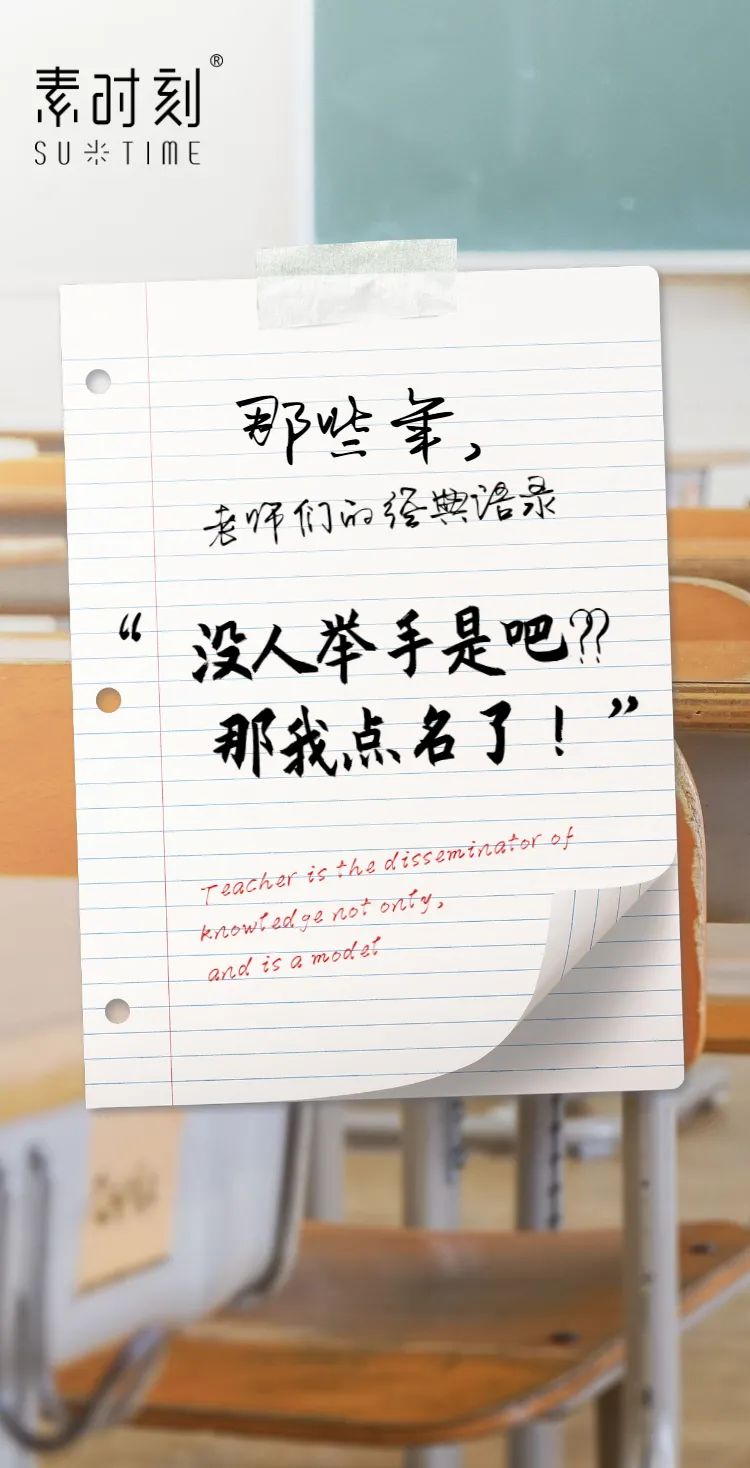 素时刻®
SU TIME
那些年，
老师们的经典语录
“没人举手是吧??
那我点名了！”
Teacher is the disseminator of
knowledge not only,
and is a model